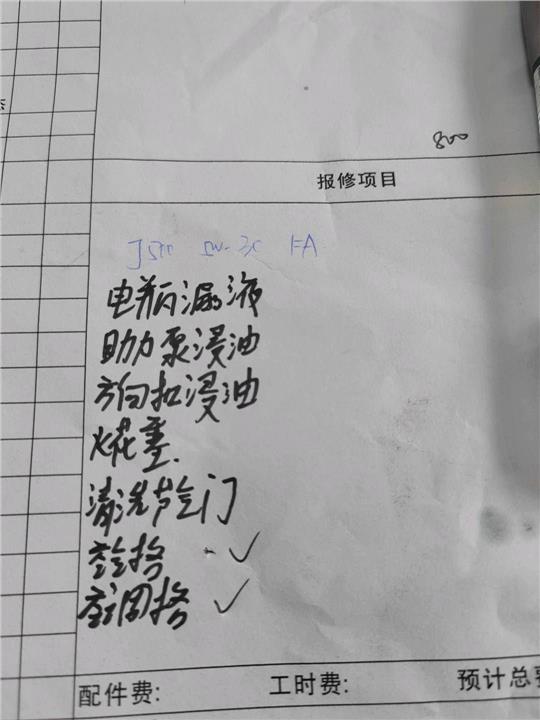 态
800
报修项目
电瓶漏液
助力泵浸油
方向机浸油
火花塞.
清洗节气门
空气格 ✓
空调格 ✓
配件费:
工时费:
预计总费